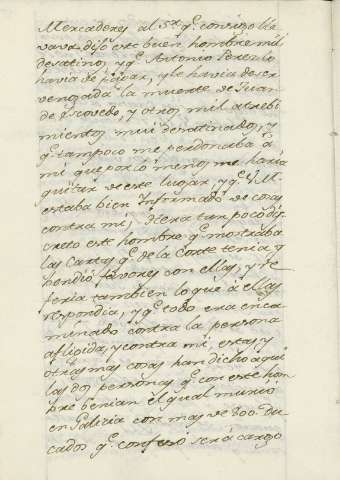 Mercaderes al Sr. qe. consigo lle
vava, dijo este buen hombre mil
desatinos, y qe. Antonio Perez lo
havia de pagar, y le havia de ser
vengada la muerte de Juan
de Escovedo, y otros mil atrebi
mientos mui desatinados, y
qe. tampoco me perdonaba â
mi que por lo menos me haria
quitar de este lugar, y qe. V. M.
estaba bien informado de cosas
contra mi; Hera tan poco dis
creto este hombre qe. mostraba
las Cartas qe. de la Corte tenia y
bendió favores con ellas, y re
feria tambien lo que â ellas
respondia, y qe. todo era enca
minado contra la persona
afligida, y contra mi, estas, y
otras mas cosas han dicho aqui
las dos personas qe. con este hom
bre benian el qual murió
en Galicia con mas de 800 du
cados qe. confesó será cargo